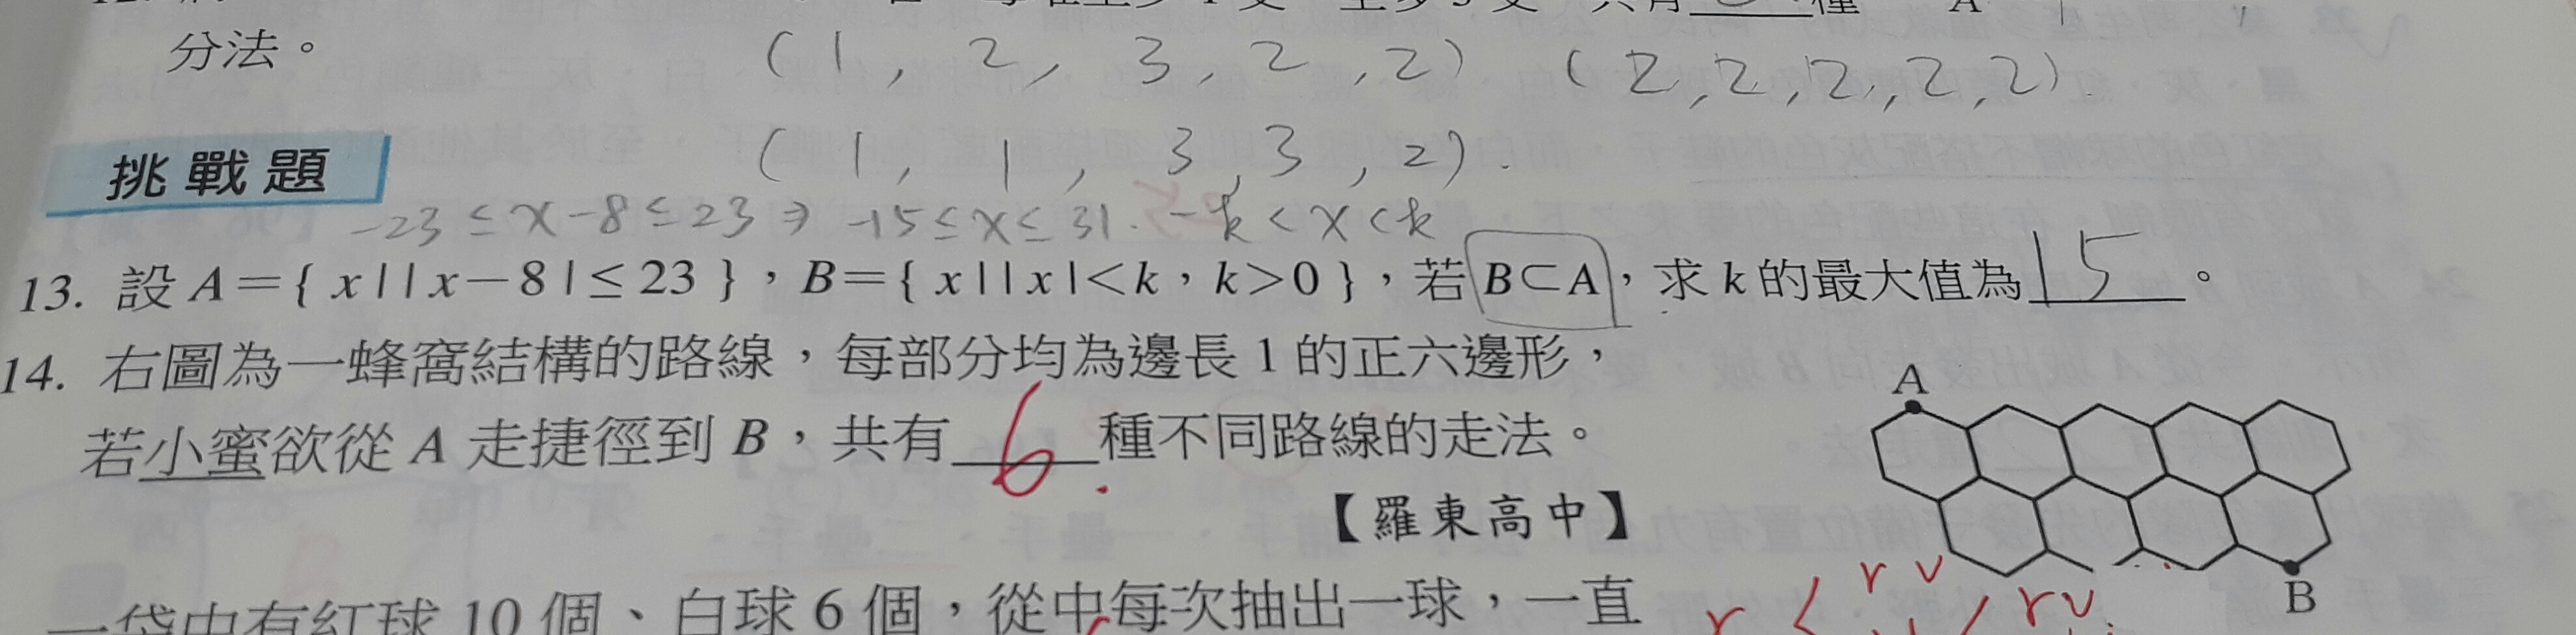 分法。
(1, 2, 3, 2, 2) (2, 2, 2, 2, 2).
(1, 1, 3, 3, 2).
挑戰題
-23≤x-8≤23 ⇒ -15≤x≤31. -k<x<k
13. 設A={x||x-8|≤23},B={x||x|<k,k>0},若B⊂A,求k的最大值為15。
14. 右圖為一蜂窩結構的路線,每部分均為邊長1的正六邊形,
若小蜜欲從A走捷徑到B,共有6種不同路線的走法。
【羅東高中】
A
B
一袋中有紅球10個、白球6個,從中每次抽出一球,一直